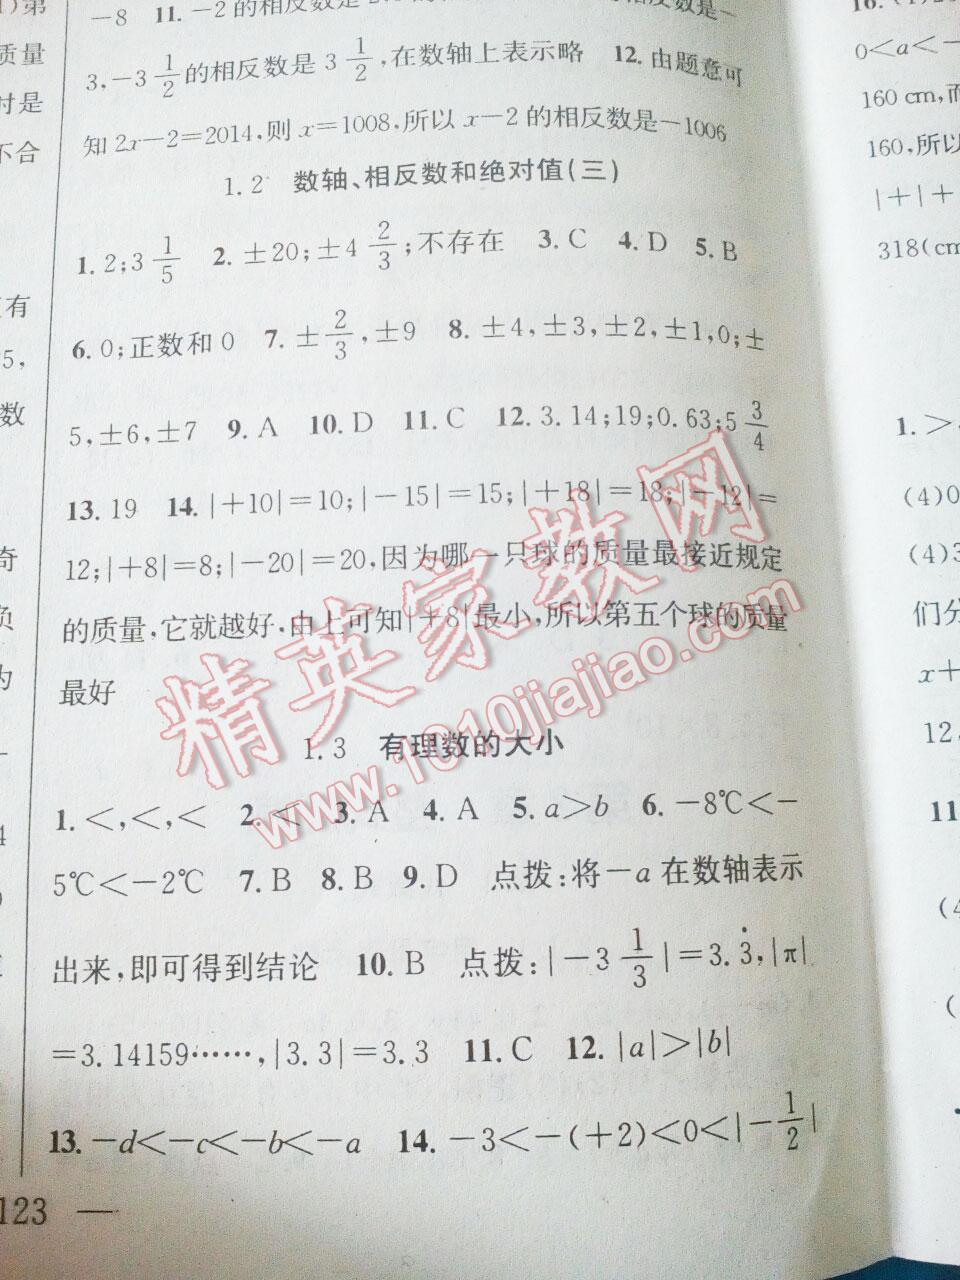 -8 11. -2的相反数是
3, -3 1/2 的相反数是 3 1/2, 在数轴上表示略 12. 由题意可
知 2x-2=2014, 则 x=1008, 所以 x-2 的相反数是-1006
1.2 数轴、相反数和绝对值(三)
1. 2; 3 1/5 2. ±20; ±4 2/3; 不存在 3. C 4. D 5. B
6. 0; 正数和 0 7. ± 2/3, ±9 8. ±4, ±3, ±2, ±1, 0; ±
5, ±6, ±7 9. A 10. D 11. C 12. 3.14; 19; 0.63; 5 3/4
13. 19 14. |+10|=10; |-15|=15; |+18|=18; |-12|=
12; |+8|=8; |-20|=20, 因为哪一只球的质量最接近规定
的质量, 它就越好, 由上可知|+8|最小, 所以第五个球的质量
最好
1.3 有理数的大小
1. <, <, < 2. < 3. A 4. A 5. a>b 6. -8℃<-
5℃<-2℃ 7. B 8. B 9. D 点拨: 将-a 在数轴表示
出来, 即可得到结论 10. B 点拨: |-3 1/3|=3.3̇, |π|
=3.14159……, |3.3|=3.3 11. C 12. |a|>|b|
13. -d<-c<-b<-a 14. -3<-(+2)<0<|-1/2|
123 —
)第
质量
时是
不合
有
5,
数
奇
负
为
16.
0<a<-
160 cm, 而
160, 所以
|+|+
318(cm
1. >,
(4)0
(4)3
们分
x+
12,
11
(4
(
精英家教网
www.1010jiajiao.com